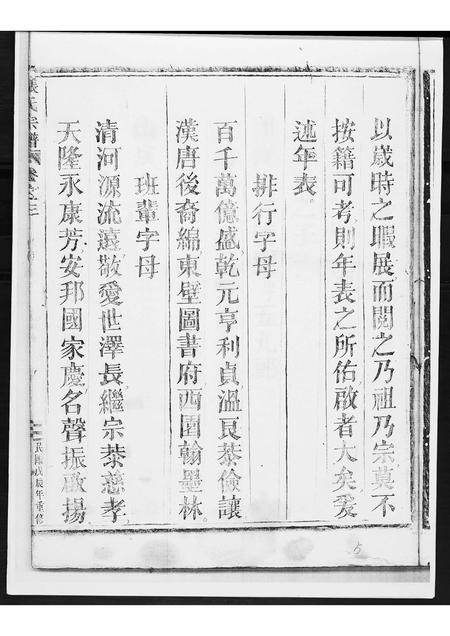 以歲時之暇展而閱之乃祖乃宗莫不
按籍可考則年表之所佑啟者大矣爰
述年表。
排行字母
百千萬億盛乾元亨利貞溫良恭儉讓
漢唐後裔綿東壁圖書府西園翰墨林。
班輩字母
清河源流遠敬愛世澤長繼宗恭慈孝
天隆永康芳安邦國家慶名聲振啟揚
張氏宗譜 卷之二
民國戊辰年重修
5